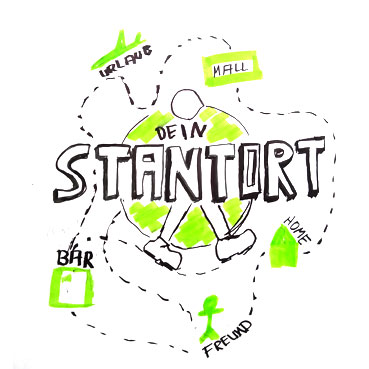 URLAUB
MALL
DEIN
STANTORT
HOME
BAR
FREUND